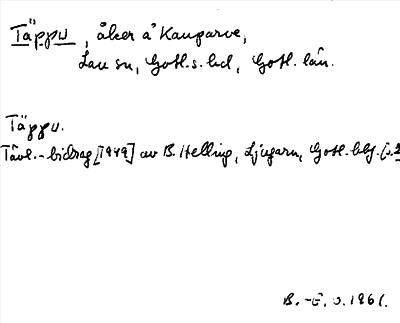 Täppu, åker å Kauparve,
Lau sn, Gotl. s. hd, Gotl. län.
Täppu.
Tävl.-bidrag [1949] av B. Helling, Ljugarn, Gotl.
B. -E. O. 1961.